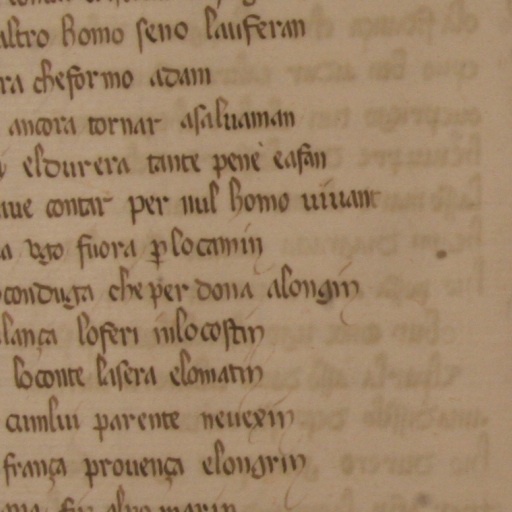 altro homo seno lauferan
ra cheformo adam
ancora tornar asaluaman
eldurera tante pene eafan
aue contar per nul homo uiuant
a ugo fuora ꝑlocamin
conduga cheper dona alongin
lança loferi inlocostin
loconte lasera elomatin
cunlui parente neuexin
frança prouença elongrin